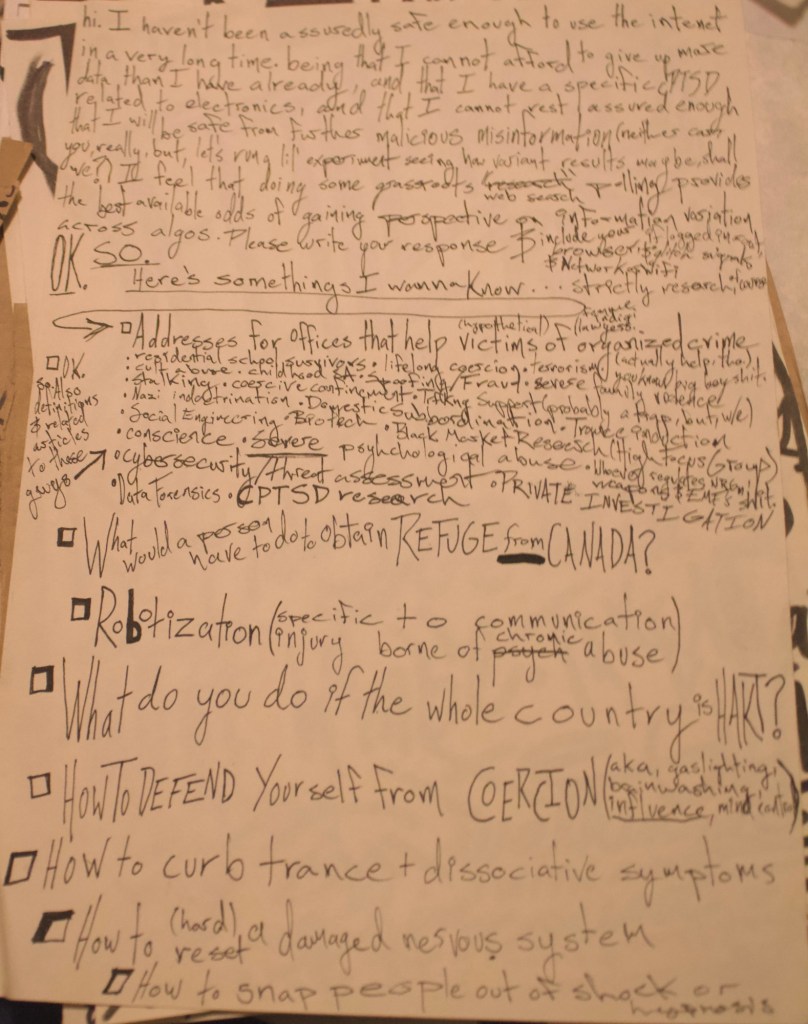 hi. I haven't been assuredly safe enough to use the internet
in a very long time. being that I cannot afford to give up more
data than I have already, and that I have a specific CPTSD
related to electronics, and that I cannot rest assured enough
that I will be safe from further malicious misinformation (neither can
you, really, but, let's run a lil' experiment seeing how variant results maybe, shall
we?) I feel that doing some grassroots polling provides
web search
the best available odds of gaining perspective on information variation
across algos. Please write your response & include your browser
& if logged in or not
& Network or wifi
OK. SO.
Here's somethings I wanna know... strictly research,
Addresses for offices that help victims of organized crime
(hypothetical)
(lawyers)
(actually help, tho)
OK.
so. Also
definitions
& related
articles
to these
guys
• residential school survivors • lifelong coercion • terrorism
• cult abuse • childhood SA • Spoofing/Fraud • severe family violence
• stalking • coercive containment • Talking Support (probably a trap, but, w/e)
• Nazi indoctrination • Domestic Subordination • Trance induction
• Social Engineering • Biotech • Black Market Research (High Focus Group)
• conscience • Severe psychological abuse
• cybersecurity/threat assessment • PRIVATE INVESTIGATION
• Data Forensics • CPTSD research
What would a person have to do to obtain REFUGE from CANADA?
Robotization (specific to communication
injury borne of chronic abuse)
What do you do if the whole country is HART?
How To DEFEND Yourself From COERCION (aka, gaslighting,
brainwashing,
influence, mind control)
How to curb trance + dissociative symptoms
How to (hard) reset a damaged nervous system
How to snap people out of shock or
hypnosis